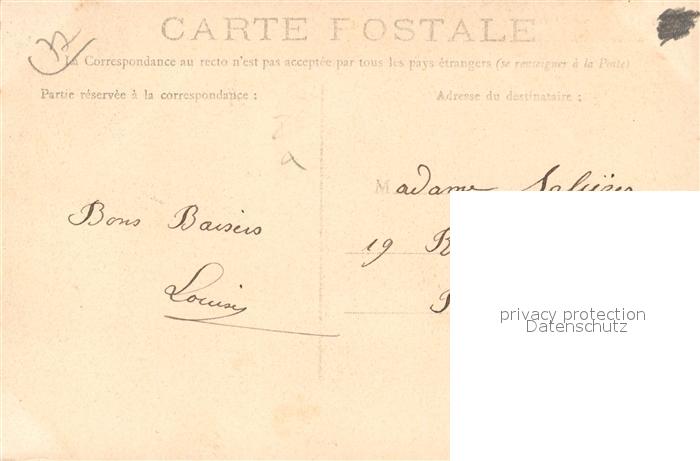 CARTE POSTALE
La Correspondance au recto n'est pas acceptée par tous les pays étrangers (se renseigner à la Poste)
Partie réservée à la correspondance :
Adresse du destinataire :
Bons Baisers
Louise
Madame
19 R
P
privacy protection
Datenschutz